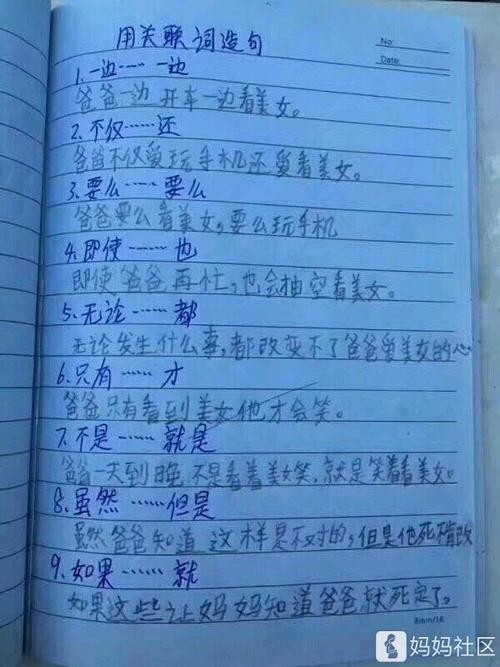 用关联词造句
No:
Date:
1.一边……一边
爸爸一边开车一边看美女。
2.不仅……还
爸爸不仅爱玩手机还爱看美女。
3.要么……要么
爸爸要么看美女,要么玩手机
4.即使……也
即使爸爸再忙,也会抽空看美女。
5.无论……都
无论发生什么事,都改变不了爸爸爱美女的心
6.只有……才
爸爸只有看到美女他才会笑。
7.不是……就是
爸爸一天到晚,不是看着美女笑,就是笑着看美女。
8.虽然……但是
虽然爸爸知道这样是不对的,但是他死不悔改
9.如果……就
如果这些让妈妈知道爸爸就死定了。
8mm/18
妈妈社区